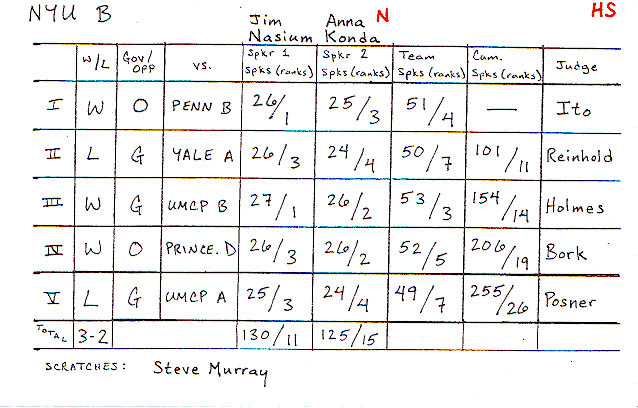 NYU B Jim Anna N HS
Nasium Konda
W/L Gov/OPP vs. Spkr 1 Spks (ranks) Spkr 2 Spks (ranks) Team Spks (ranks) Cum. Spks (ranks) Judge
I W O PENN B 26/1 25/3 51/4 — Ito
II L G YALE A 26/3 24/4 50/7 101/11 Reinhold
III W G UMCP B 27/1 26/2 53/3 154/14 Holmes
IV W O PRINCE. D 26/3 26/2 52/5 206/19 Bork
V L G UMCP A 25/3 24/4 49/7 255/26 Posner
TOTAL 3-2 130/11 125/15
SCRATCHES: Steve Murray